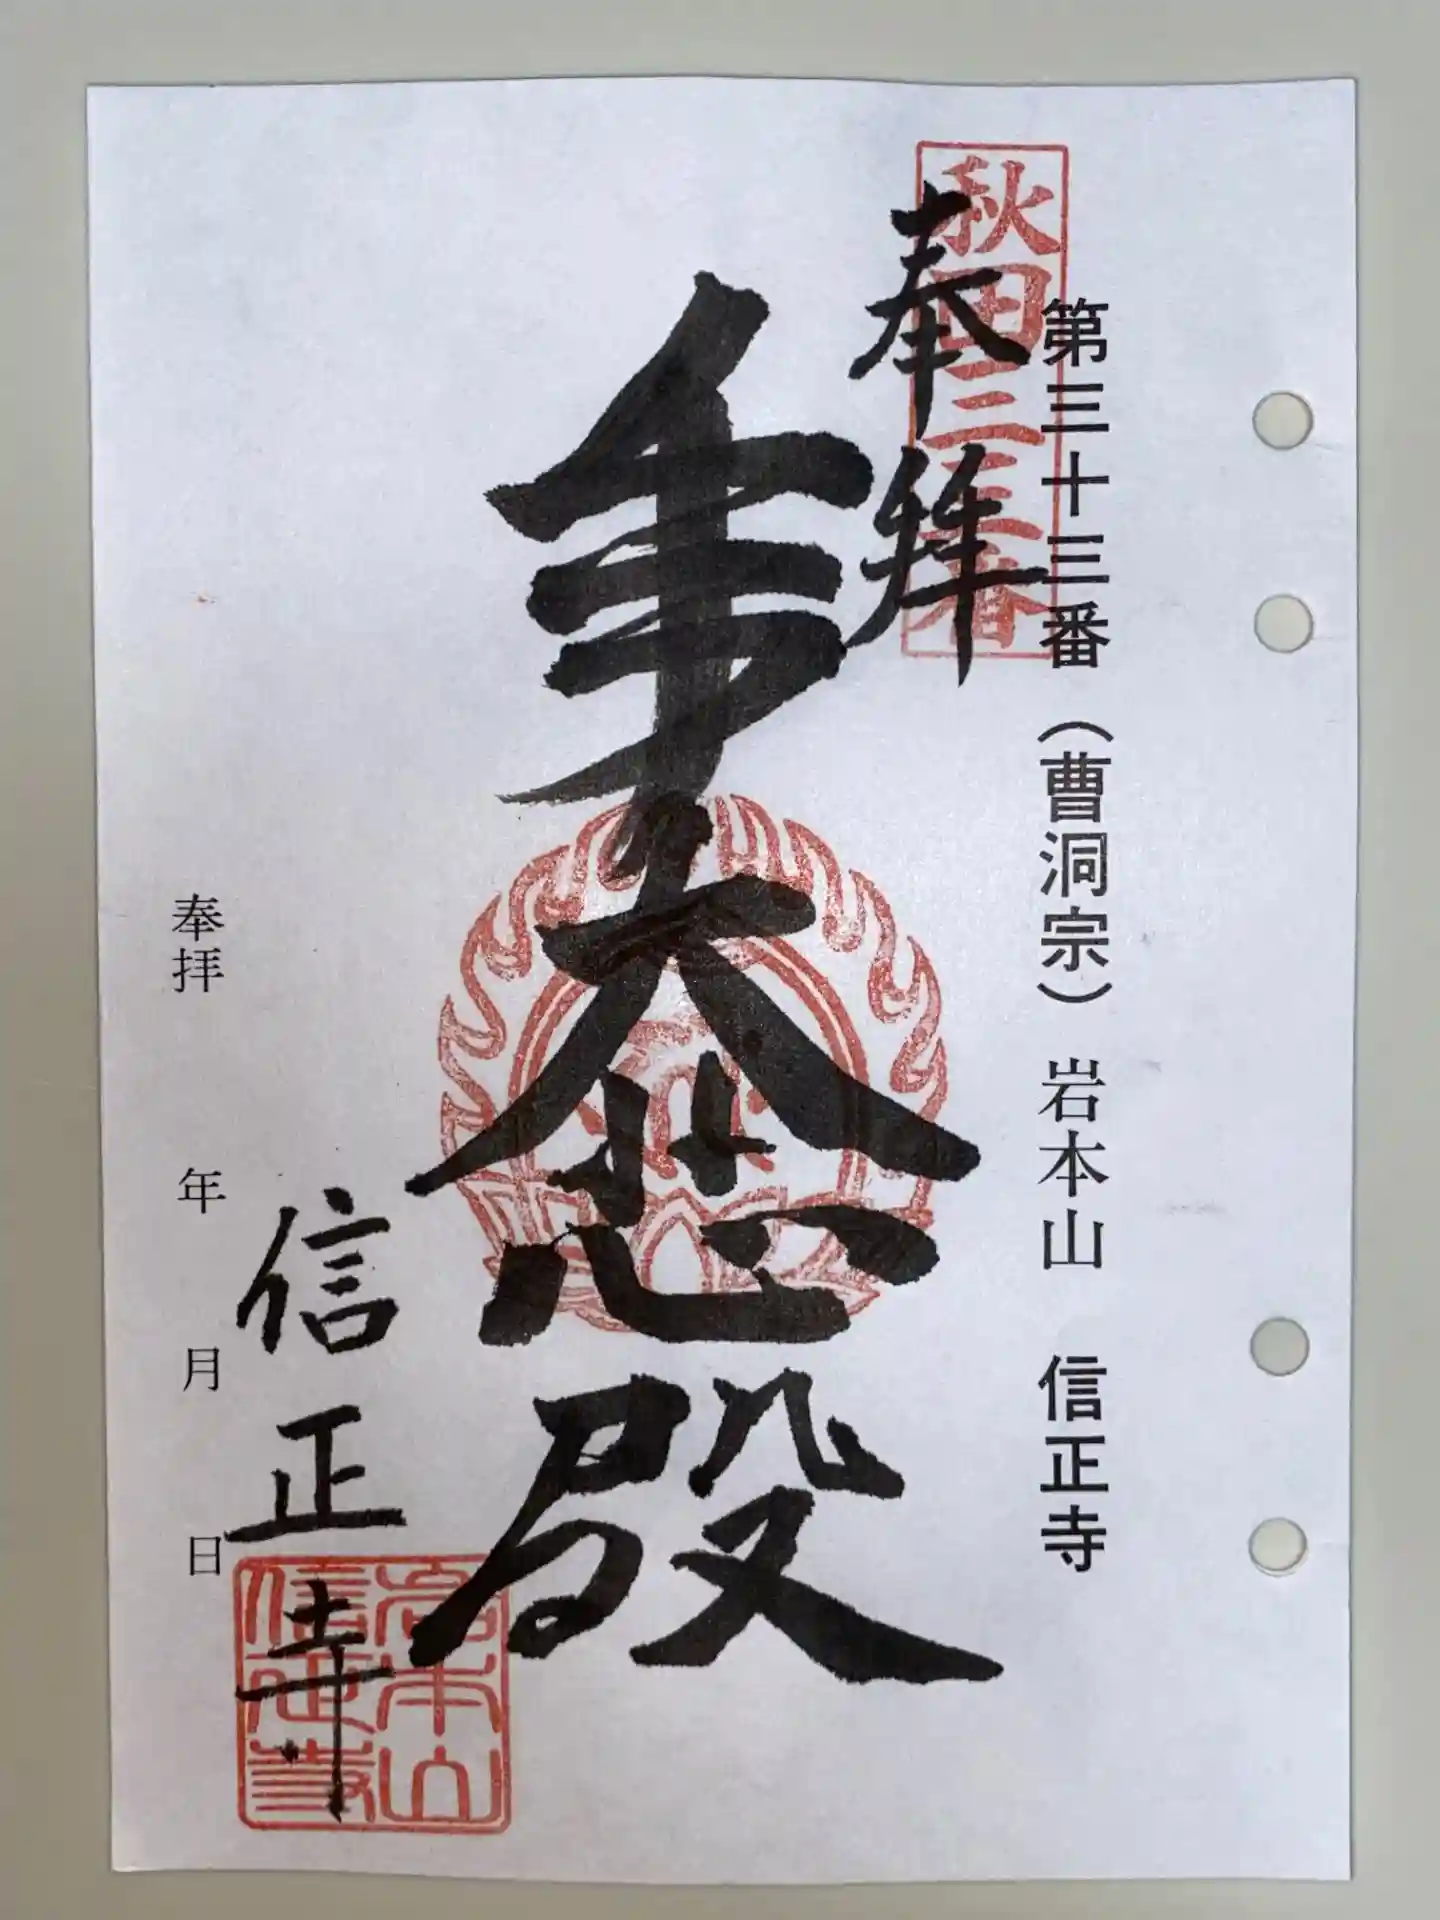 第三十三番（曹洞宗）岩本山　信正寺
秋田三十三番
奉拝
大悲殿
信正寺
岩本山
信正寺
奉拝　年　月　日